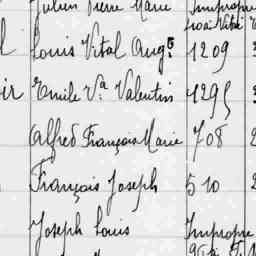 Julien Pierre Marie Impropre
Louis Vital Aug.
1209
Emile Va Valentin 1295
Alfred François Marie 708
François Joseph 510
Joseph Louis Impropre